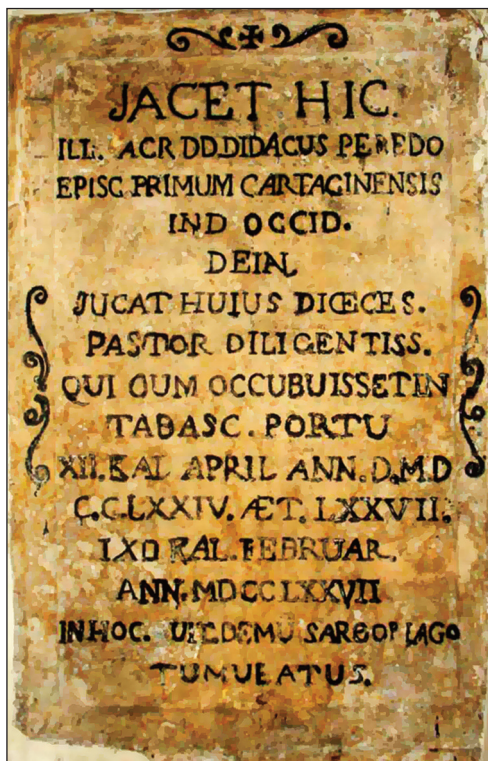 JACET HIC.
ILL. ACR DD.DIDACUS PEREDO
EPISC PRIMUM CARTAGINENSIS
IND OCCID.
DEIN,
JUCAT HUIUS DIŒCES.
PASTOR DILIGENTISS.
QUI CUM OCCUBUISSET IN
TABASC. PORTU
XII. KAL APRIL ANN. D.M.D
C.C.LXXIV. ÆT. LXXVII.
IXD KAL. FEBRUAR.
ANN. MDCCLXXVII
IN HOC. DEMU SARCOP LAGO
TUMULATUS.